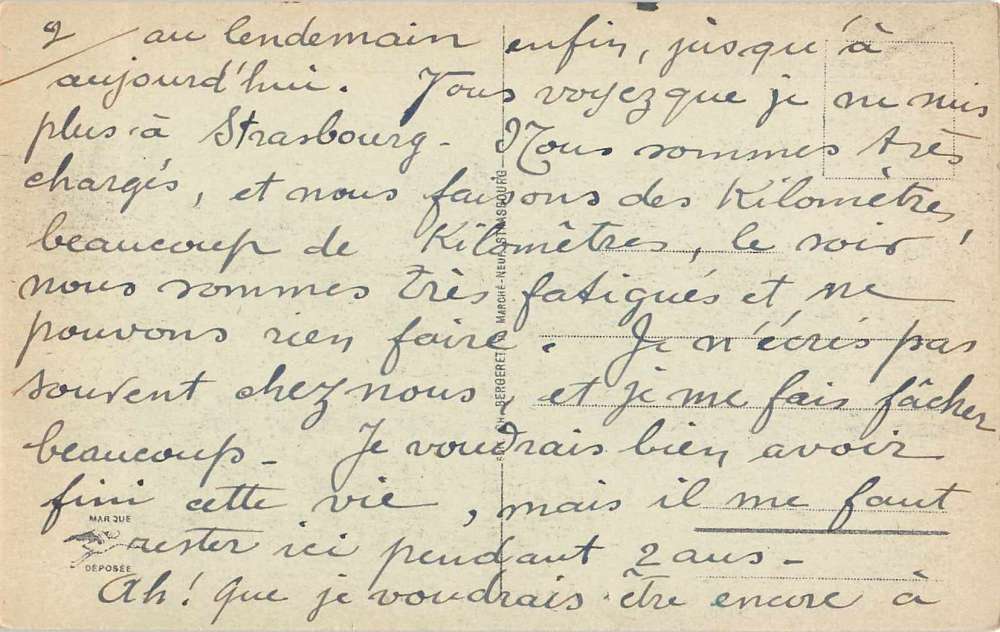 2/ au lendemain enfin, jusqu'à
aujourd'hui. Vous voyez que je ne suis
plus à Strasbourg - Nous sommes très
chargés, et nous faisons des Kilomètres,
beaucoup de Kilomètres, le soir
nous sommes très fatigués et ne
pouvons rien faire. Je n'écris pas
souvent chez nous, et je me fais fâcher
beaucoup - Je voudrais bien avoir
fini cette vie, mais il me faut
rester ici pendant 2 ans -
Ah! que je voudrais être encore à
MARQUE
DÉPOSÉE
BERGERET MARCHÉ-NEUF STRASBOURG